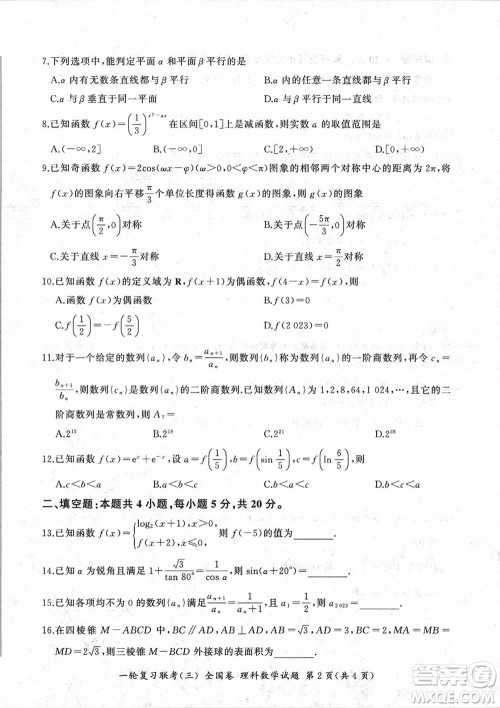 7.下列选项中,能判定平面 α 和平面 β 平行的是
A.α 内有无数条直线都与 β 平行 B.α 内的任意一条直线都与 β 平行
C.α 与 β 垂直于同一平面 D.α 与 β 平行于同一直线
8.已知函数 f(x)=(1/3)^(x²-ax) 在区间[0,1]上是减函数,则实数 a 的取值范围是
A.(-∞,2] B.(-∞,0] C.[2,+∞) D.[0,+∞)
9.已知奇函数 f(x)=2cos(ωx-φ) 图象的相邻两个对称中心的距离为 2π,将
f(x)的图象向右平移 π/3 个单位长度得函数 g(x)的图象,则 g(x)的图象
A.关于点(π/3,0)对称 B.关于点(-5π/3,0)对称
C.关于直线 x=π/3 对称 D.关于直线 x=-π/2 对称
10.已知函数 f(x)的定义域为 R,f(x+1)为偶函数,f(4-x)=f(x),则
A.函数 f(x)为偶函数 B.f(3)=0
C.f(1/2)=-f(5/2) D.f(2 023)=0
11.对于一个给定的数列{aₙ},令 bₙ=aₙ₊₁/aₙ,则数列{bₙ}称为数列{aₙ}的一阶商数列,再令 cₙ=
bₙ₊₁/bₙ,则数列{cₙ}是数列{aₙ}的二阶商数列.已知数列{Aₙ}为 1,2,8,64,1 024,…,且它的二
阶商数列是常数列,则 A₆=
A.2¹⁵ B.2¹⁹ C.2²¹ D.2²⁸
12.已知函数 f(x)=eˣ+e⁻ˣ,设 a=f(1/5),b=f(sin 1/5),c=f(ln 6/5),则
A.b<a<c B.c<a<b C.b<c<a D.c<b<a
二、填空题:本题共 4 小题,每小题 5 分,共 20 分。
13.已知函数 f(x)={log₂(x+1),x>0, f(x+3),x≤0, 则 f(-5)的值为
14.已知 α 为锐角且满足 1+√3/tan 80°=1/cos α,则 sin(α+20°)=
15.已知各项均不为 0 的数列{aₙ}满足 aₙ₊₁=aₙ/(aₙ+1),且 a₁=1/2,则 a₂ ₀₂₃=
16.在四棱锥 M-ABCD 中,BC∥AD,AB⊥AD,AD=2AB=2BC=2,MB=MC=
MD=2√3,则三棱锥 M-BCD 外接球的表面积为
一轮复习联考(三) 全国卷 理科数学试题 第 2 页(共 4 页)